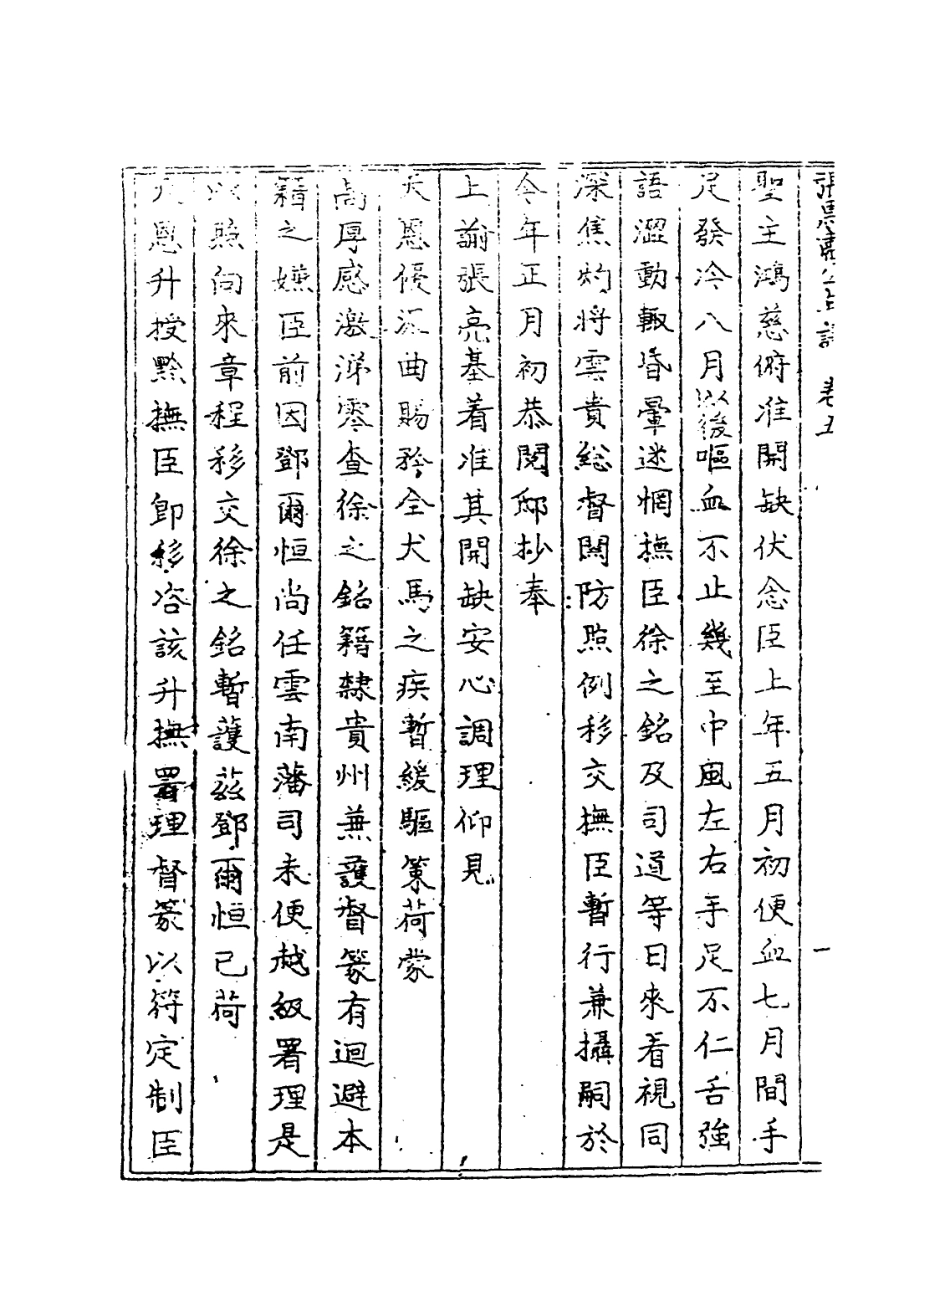 張惠肅公年譜 卷五 一
聖主鴻慈俯准開缺伏念臣上年五月初便血七月間手
足發冷八月以後嘔血不止幾至中風左右手足不仁舌強
語澀動輒昏暈迷惘撫臣徐之銘及司道等日來看視同
深焦灼將雲貴総督関防照例移交撫臣暫行兼攝嗣於
今年正月初恭閱邸抄奉
上諭張亮基着准其開缺安心調理仰見
天恩優渥曲賜矜全犬馬之疾暫緩驅策荷蒙
高厚感激涕零查徐之銘籍隸貴州兼護督篆有迴避本
籍之嫌臣前因鄧爾恒尚任雲南藩司未便越級署理是
以照向來章程移交徐之銘暫護茲鄧爾恒已荷
天恩升授黔撫臣卽移咨該升撫署理督篆以符定制臣